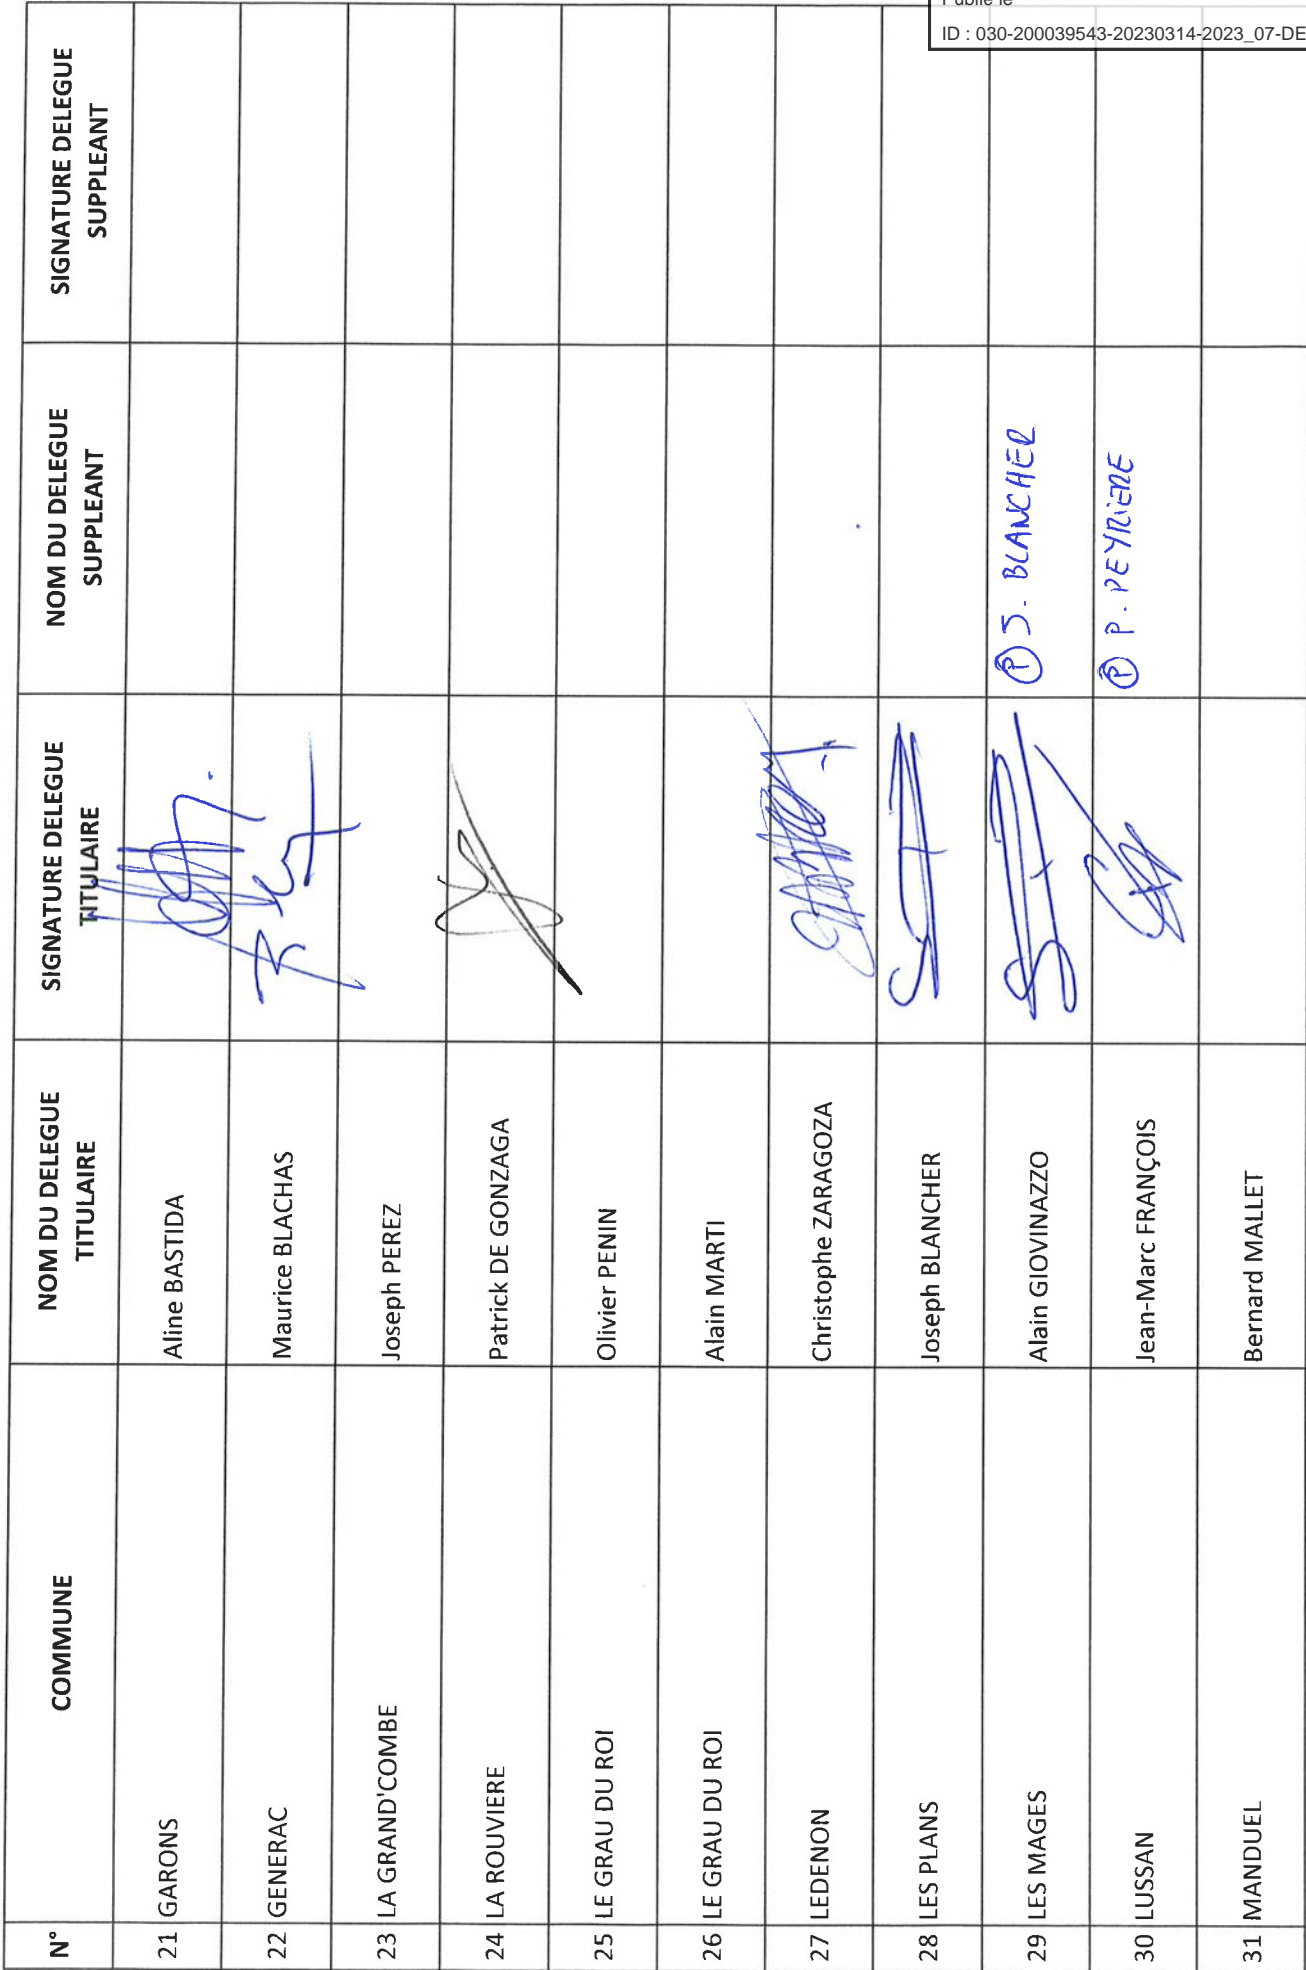 Publié le
ID : 030-200039543-20230314-2023_07-DE
N° COMMUNE NOM DU DELEGUE TITULAIRE SIGNATURE DELEGUE TITULAIRE NOM DU DELEGUE SUPPLEANT SIGNATURE DELEGUE SUPPLEANT
21 GARONS Aline BASTIDA
22 GENERAC Maurice BLACHAS
23 LA GRAND'COMBE Joseph PEREZ
24 LA ROUVIERE Patrick DE GONZAGA
25 LE GRAU DU ROI Olivier PENIN
26 LE GRAU DU ROI Alain MARTI
27 LEDENON Christophe ZARAGOZA
28 LES PLANS Joseph BLANCHER
29 LES MAGES Alain GIOVINAZZO Ⓟ J. BLANCHER
30 LUSSAN Jean-Marc FRANÇOIS Ⓟ P. PEYRIERE
31 MANDUEL Bernard MALLET